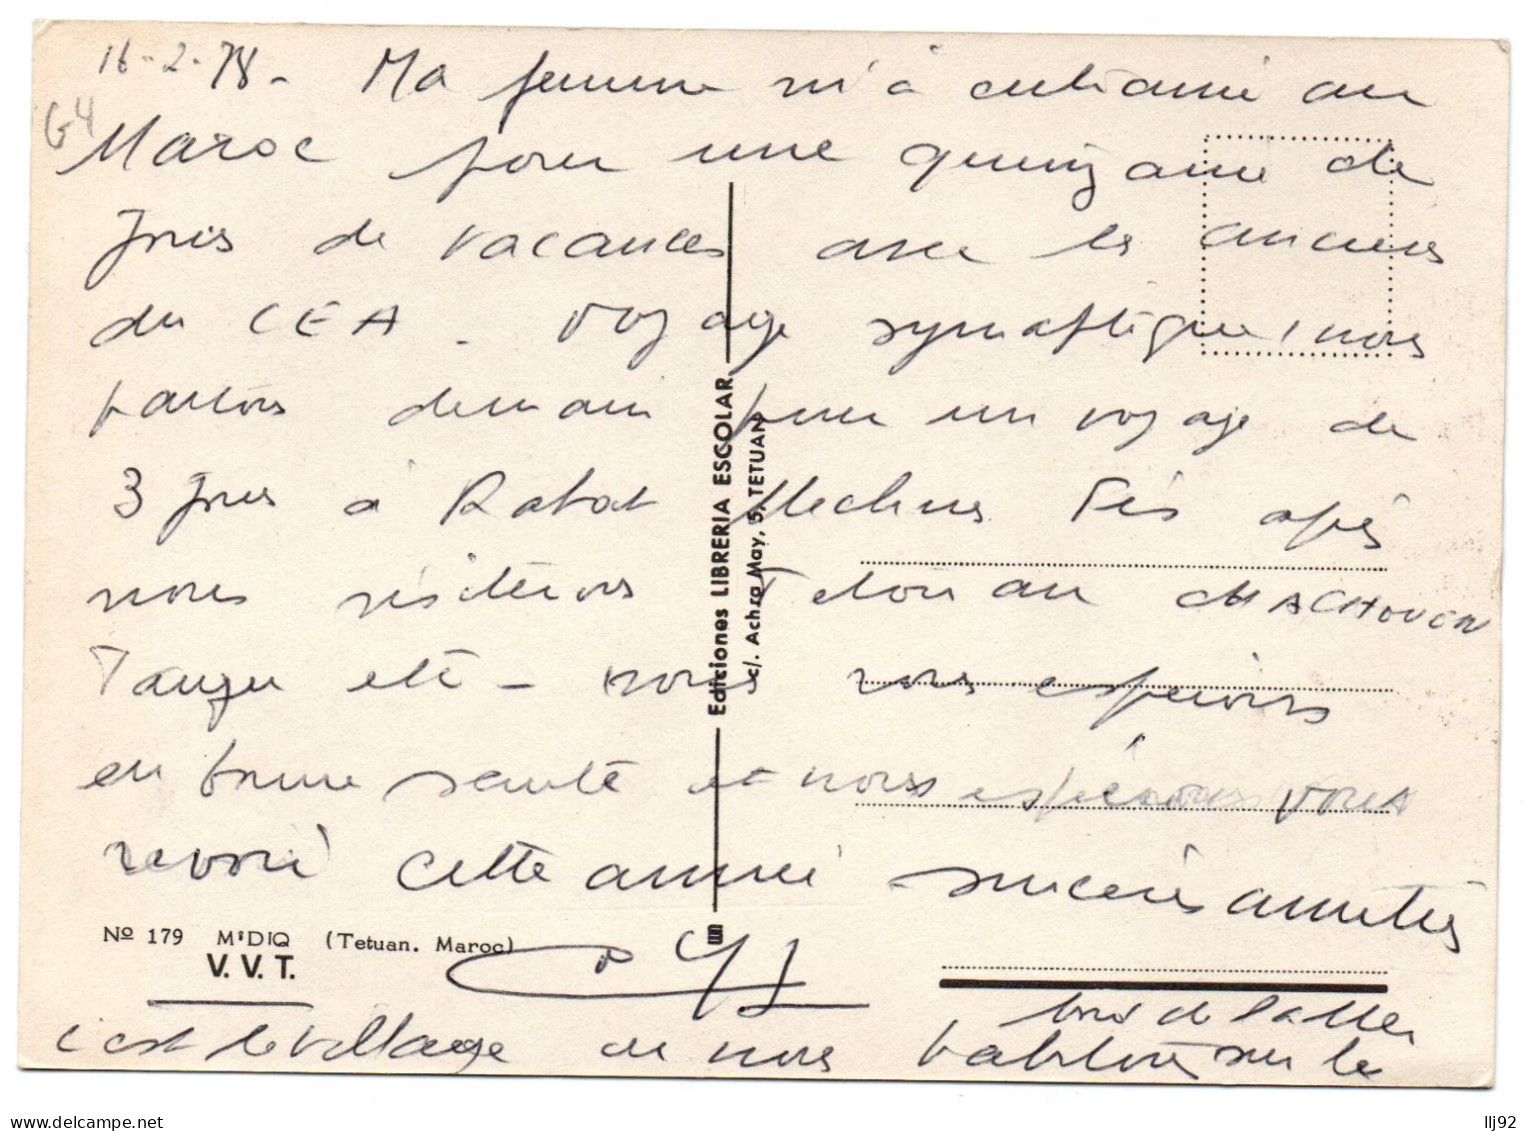 16-2-78- Ma femme m'à entrainé au
G4
Maroc pour une quinzaine de
jours de vacances avec les anciens
du CEA - voyage sympathique, nous
partons demain pour un voyage de
3 jours à Rabat Mecknes Fès après
nous visiterons Tetouan CHACHOUEN
Tanger etc - nous vous espérons
en bonne santé et nous espérons vous
revoir cette année sincères amitiés
Ediciones LIBRERIA ESCOLAR
c/. Achra May, 5, TETUAN
Nº 179 M'DIQ (Tetuan. Maroc)
V. V. T.
c'est le village ou nous habitons sur le
bord de la Mer
llj92